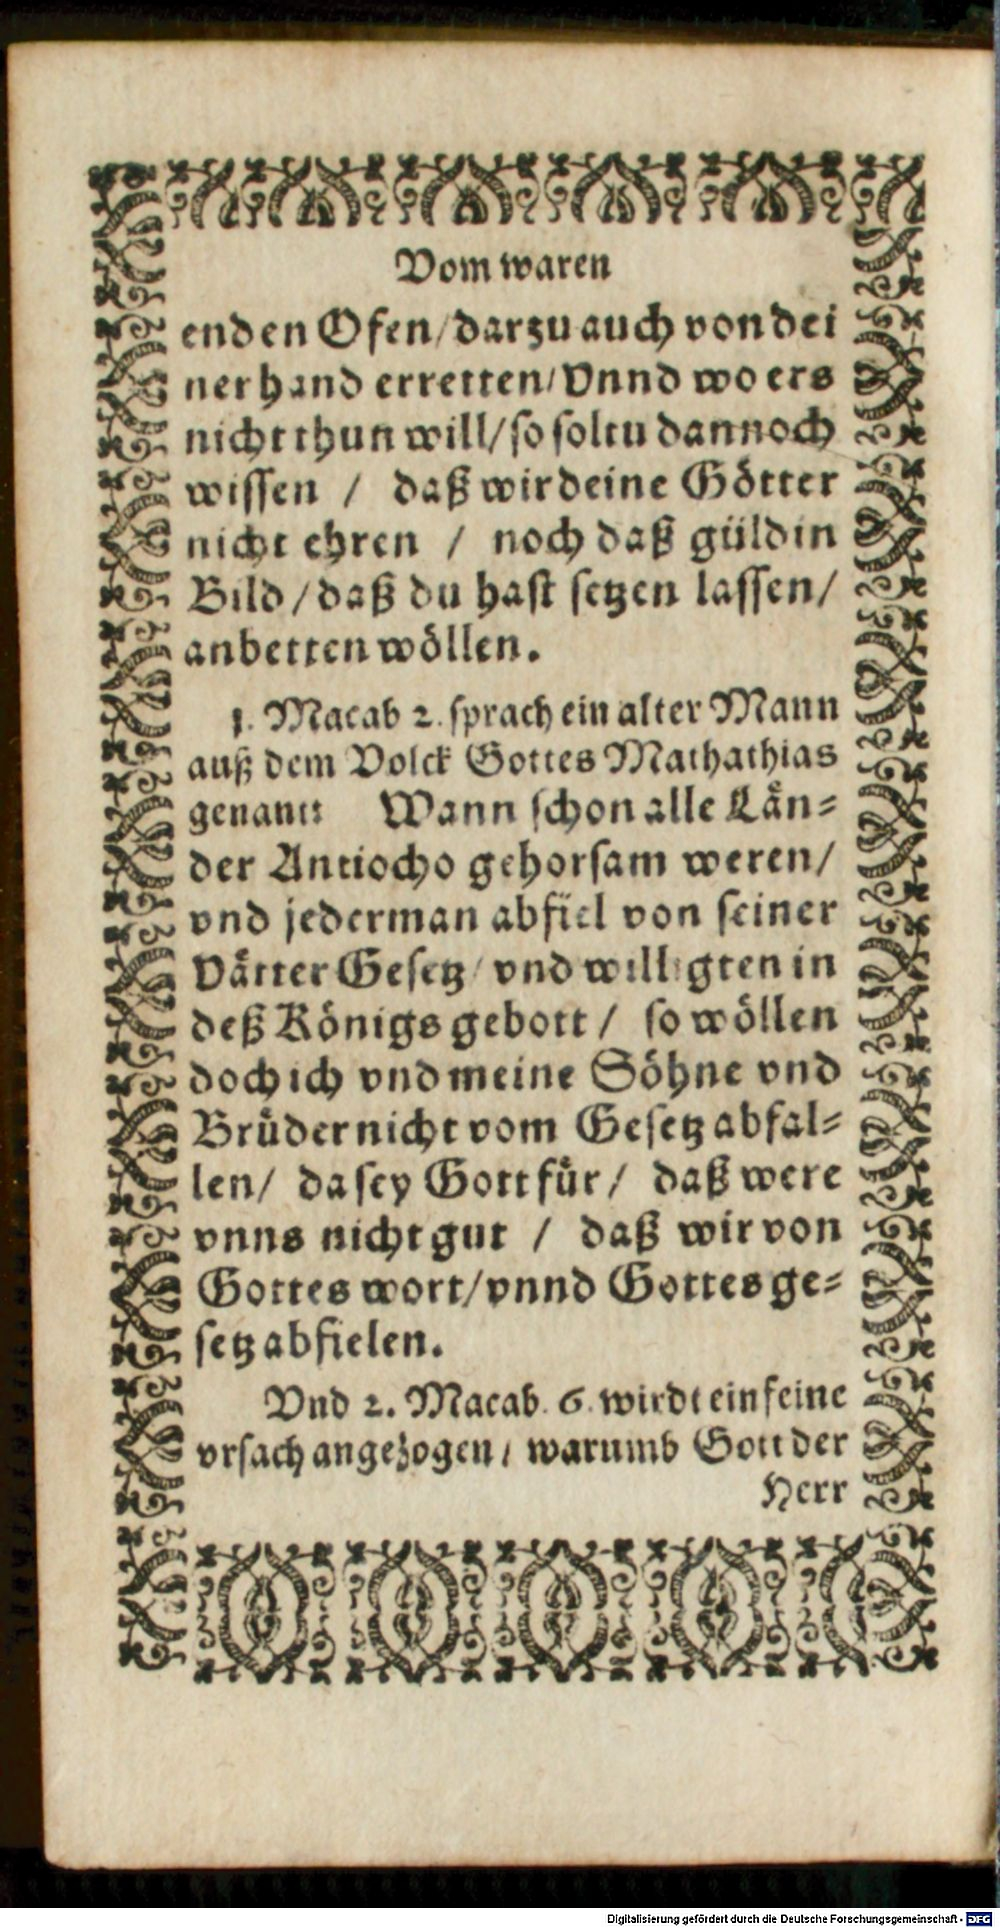 Vom waren
enden Ofen/ darzu auch von dei
ner hand erretten/ Vnnd wo ers
nicht thun will/ so soltu dannoch
wissen / daß wir deine Götter
nicht ehren / noch daß güldin
Bild/ daß du hast setzen lassen/
anbetten wöllen.
1. Macab 2. sprach ein alter Mann
auß dem Volck Gottes Mathathias
genant: Wann schon alle Län-
der Antiocho gehorsam weren/
vnd jederman abfiel von seiner
Vätter Gesetz/ vnd willigten in
deß Königs gebott/ so wöllen
doch ich vnd meine Söhne vnd
Brüder nicht vom Gesetz abfal-
len/ da sey Gott für/ daß were
vnns nicht gut / daß wir von
Gottes wort/ vnnd Gottes ge-
setz abfielen.
Vnd 2. Macab. 6. wirdt ein feine
vrsach angezogen/ warumb Gott der
Herr
Digitalisierung gefördert durch die Deutsche Forschungsgemeinschaft - DFG